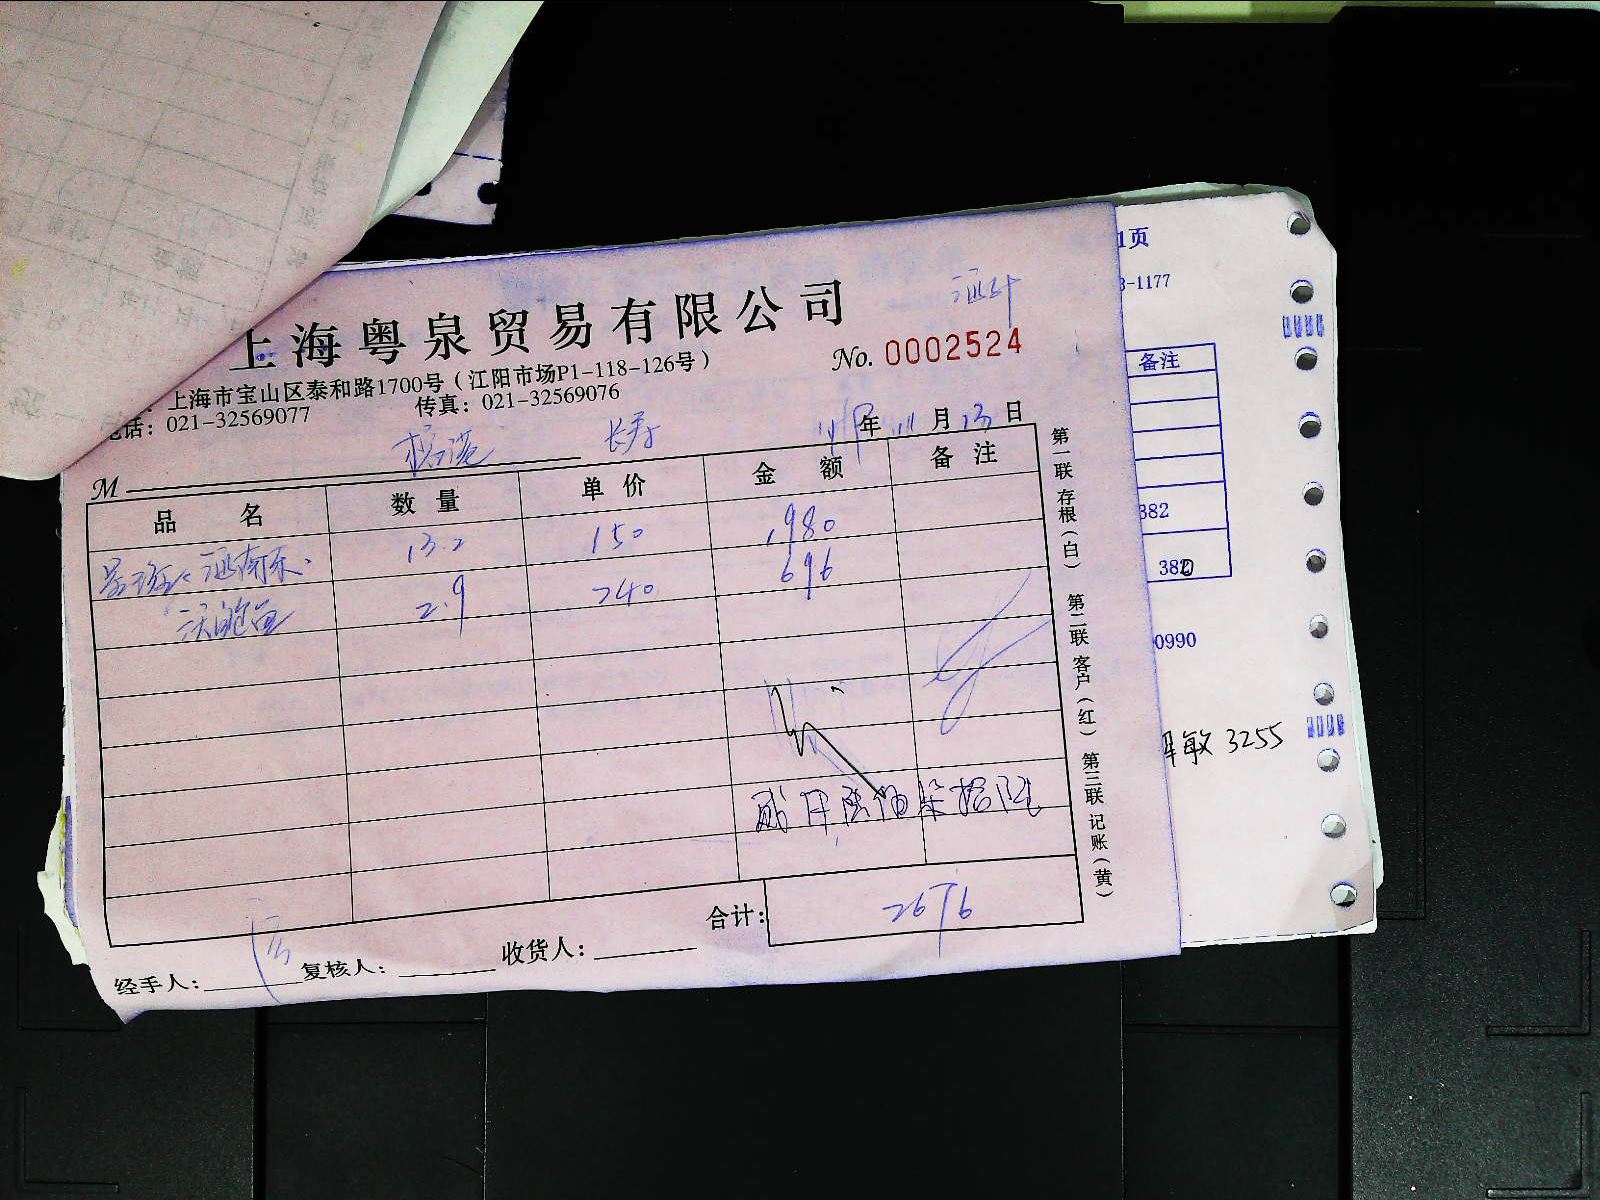 上海粤泉贸易有限公司
No. 0002524
上海市宝山区泰和路1700号（江阳市场P1-118-126号）
电话：021-32569077 传真：021-32569076
长寿
年 月 13 日
M
品名 数量 单价 金额 备注
13.2 150 1980
鲍鱼 2.9 240 696
贰仟陆佰柒拾陆
合计： 2676
经手人： 复核人： 收货人：
第一联 存根（白） 第二联 客户（红） 第三联 记账（黄）
1页
3-1177
备注
382
3820
0990
敏 3255